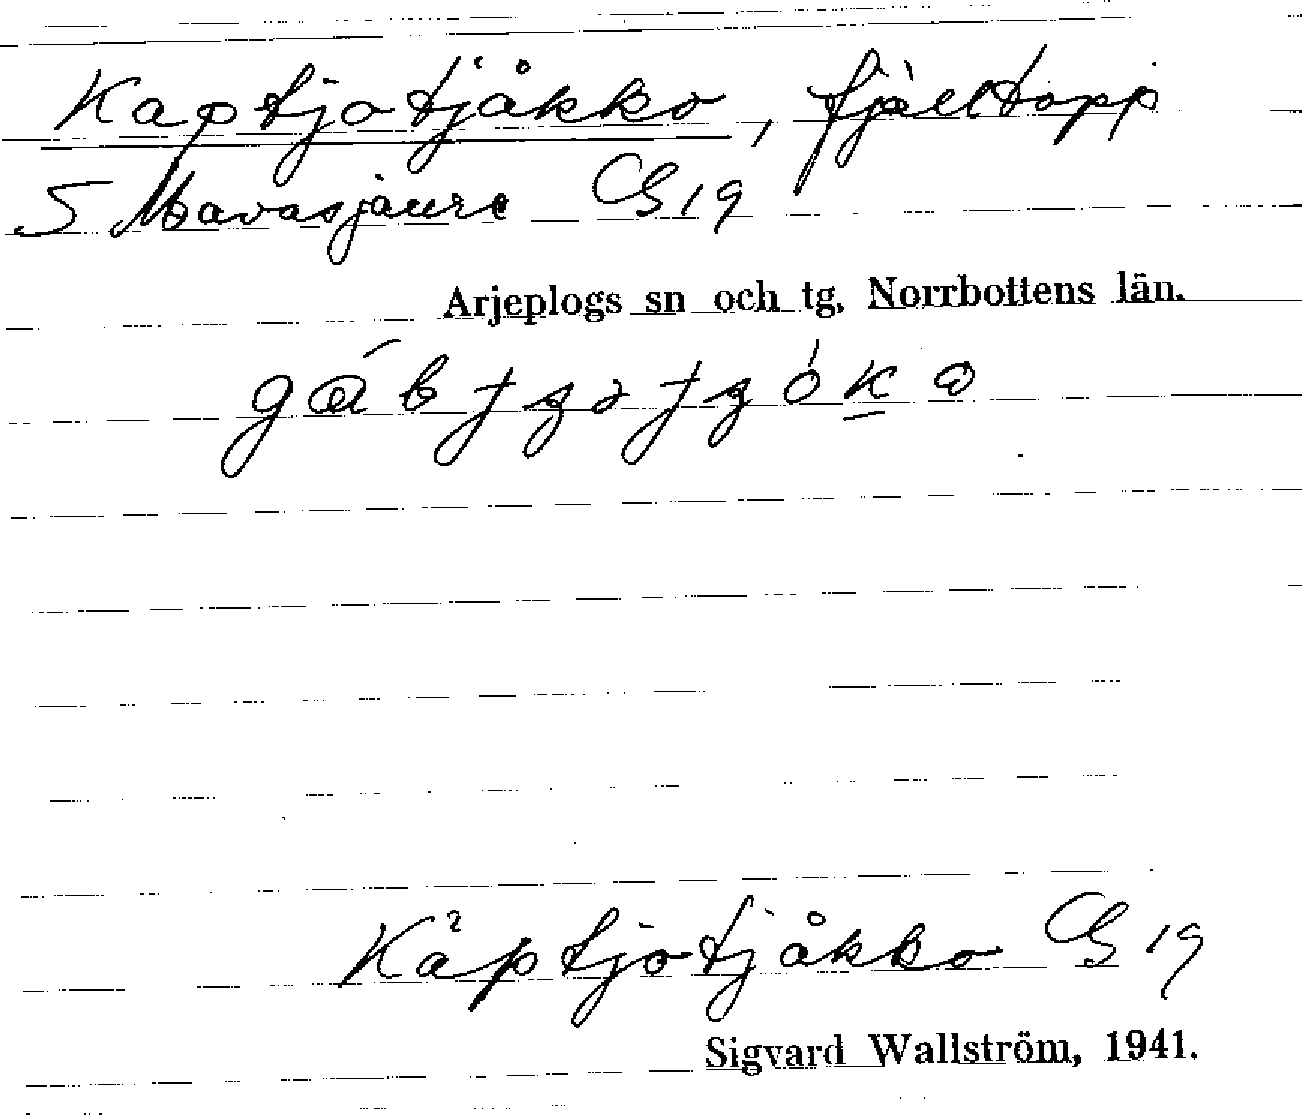 Kaptjotjåkko, fjälltopp
S Mavasjaure G 19
Arjeplogs sn och tg, Norrbottens län.
Kåptjotjåkko G 19
Sigvard Wallström, 1941.